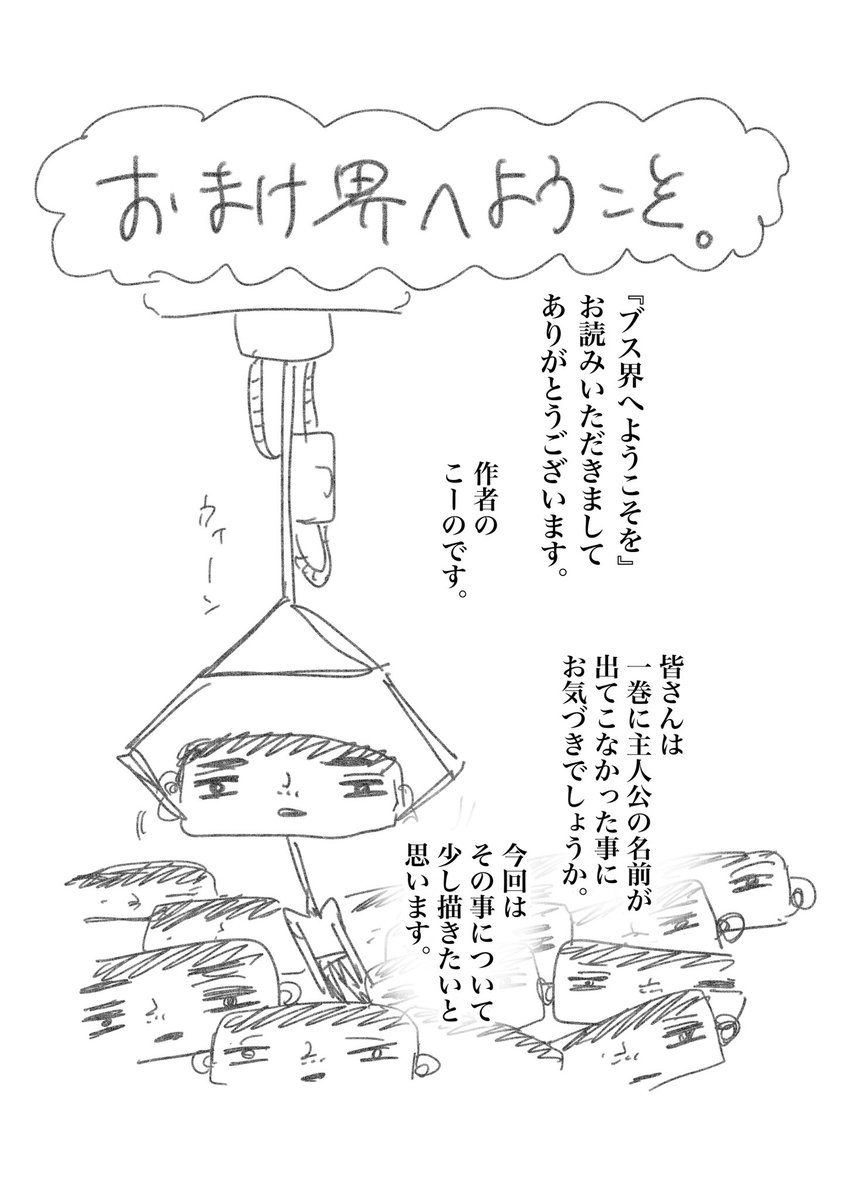 おまけ界へようこそ。
『ブス界へようこそを』
お読みいただきまして
ありがとうございます。
作者の
こーのです。
ウィーン
皆さんは
一巻に主人公の名前が
出てこなかった事に
お気づきでしょうか。
今回は
その事について
少し描きたいと
思います。